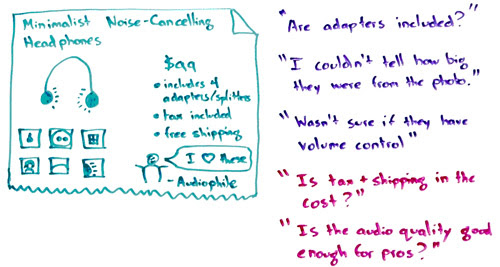 Minimalist Noise-Cancelling
Headphones
$99
• includes 4
adapters/splitters
• tax included
• free shipping
I ♡ these
- Audiophile
"Are adapters included?"
"I couldn't tell how big
they were from the photo."
"Wasn't sure if they have
volume control"
"Is tax + shipping in the
cost?"
"Is the audio quality good
enough for pros?"